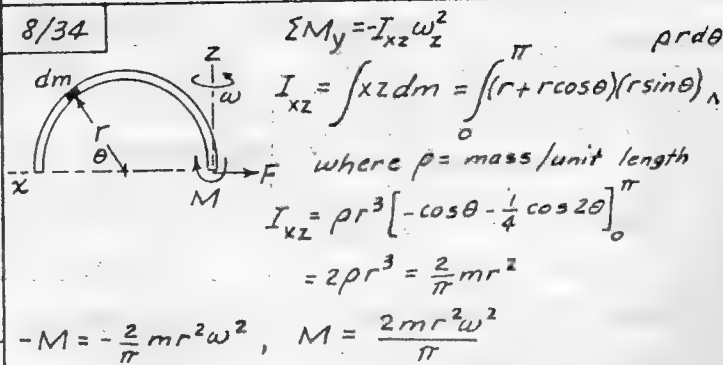 8/34
ΣM_y = -I_xz ω_z^2
I_xz = ∫xz dm = ∫_0^π (r + r cosθ)(r sinθ)‸ ρrdθ
z
ω
dm
r
θ
x
M
F
where ρ = mass/unit length
I_xz = ρr^3 [-cosθ - 1/4 cos 2θ]_0^π
= 2ρr^3 = 2/π mr^2
-M = -2/π mr^2 ω^2 , M = 2mr^2ω^2/π